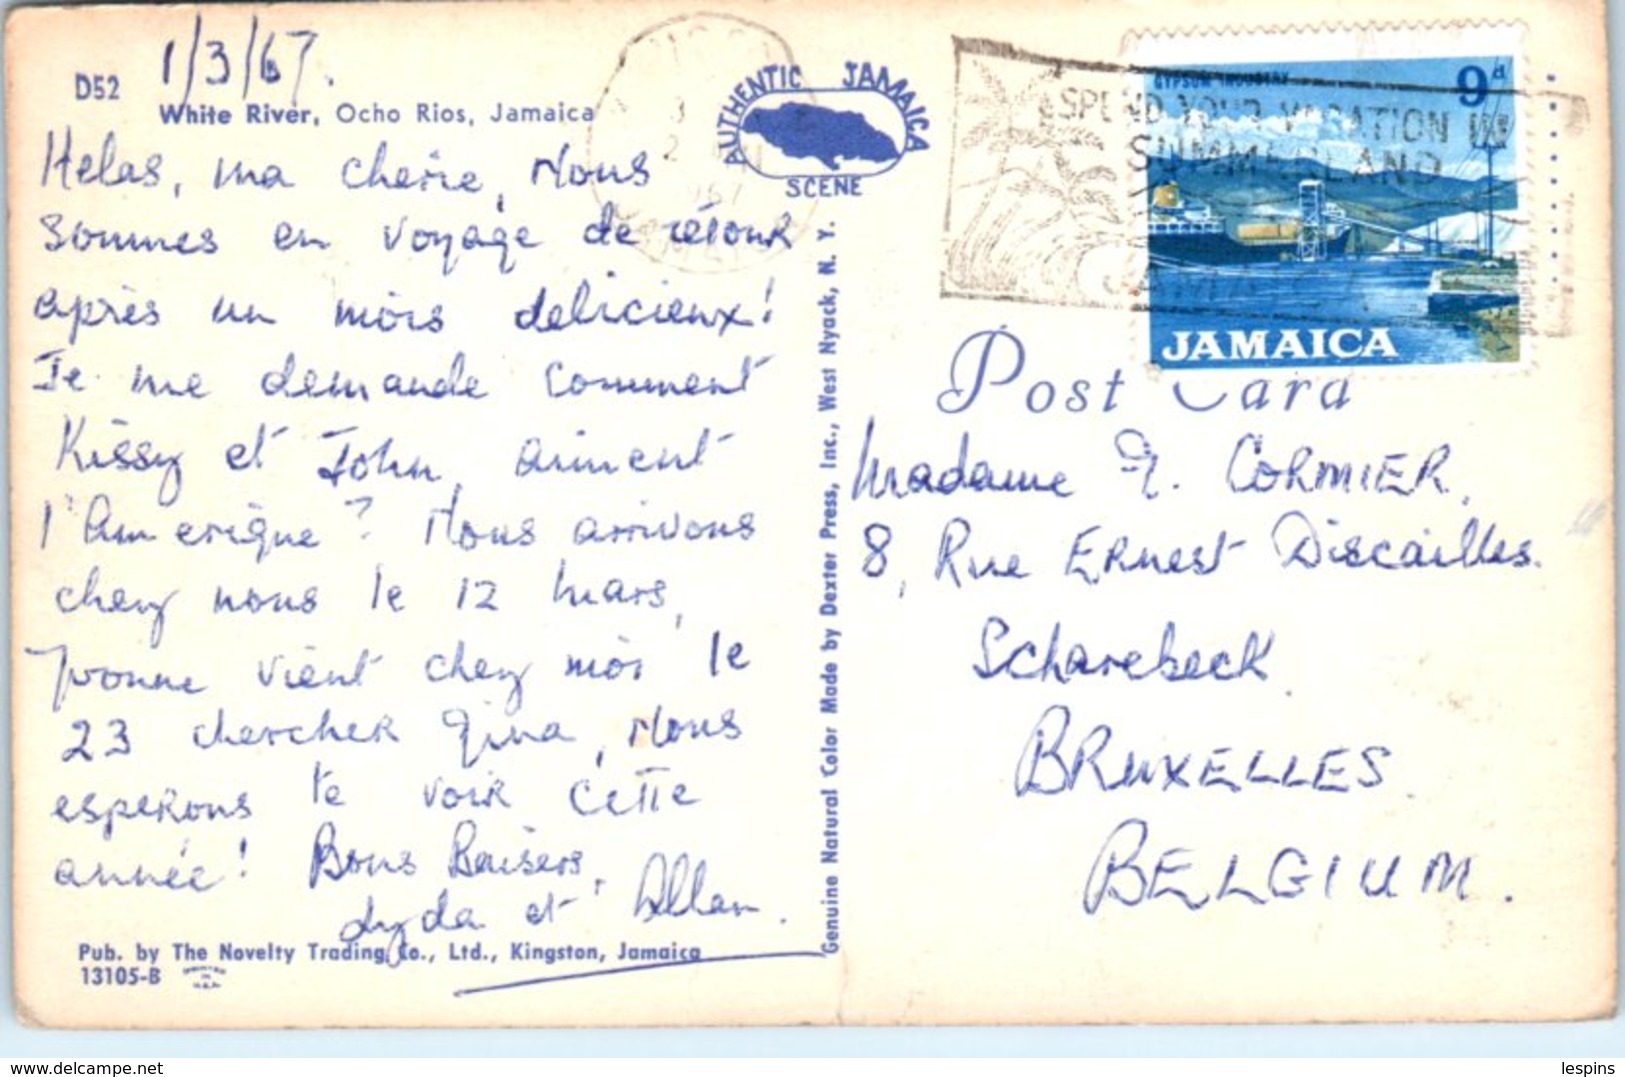 D52 1/3/67.
White River, Ocho Rios, Jamaica
Helas, ma cherie, Nous
sommes en voyage de rétour
après un mois delicieux!
Je me demande comment
Kissy et John, aiment
l'Amerique? Nous arrivons
chez nous le 12 mars,
Yvonne vient chez moi le
23 chercher Gina, Nous
esperons te voir cette
année! Bons Baisers,
Lyda et Allan.
Pub. by The Novelty Trading Co., Ltd., Kingston, Jamaica
13105-B
Genuine Natural Color Made by Dexter Press, Inc., West Nyack, N. Y.
AUTHENTIC JAMAICA
SCENE
1967
SPEND YOUR VACATION IN
SUMMERLAND
JAMAICA
GYPSUM INDUSTRY 9d
JAMAICA
Post Card
Madame G. CORMIER.
8, Rue Ernest Discailles.
Scharebeck
BRUXELLES
BELGIUM.
www.delcampe.net
lespins